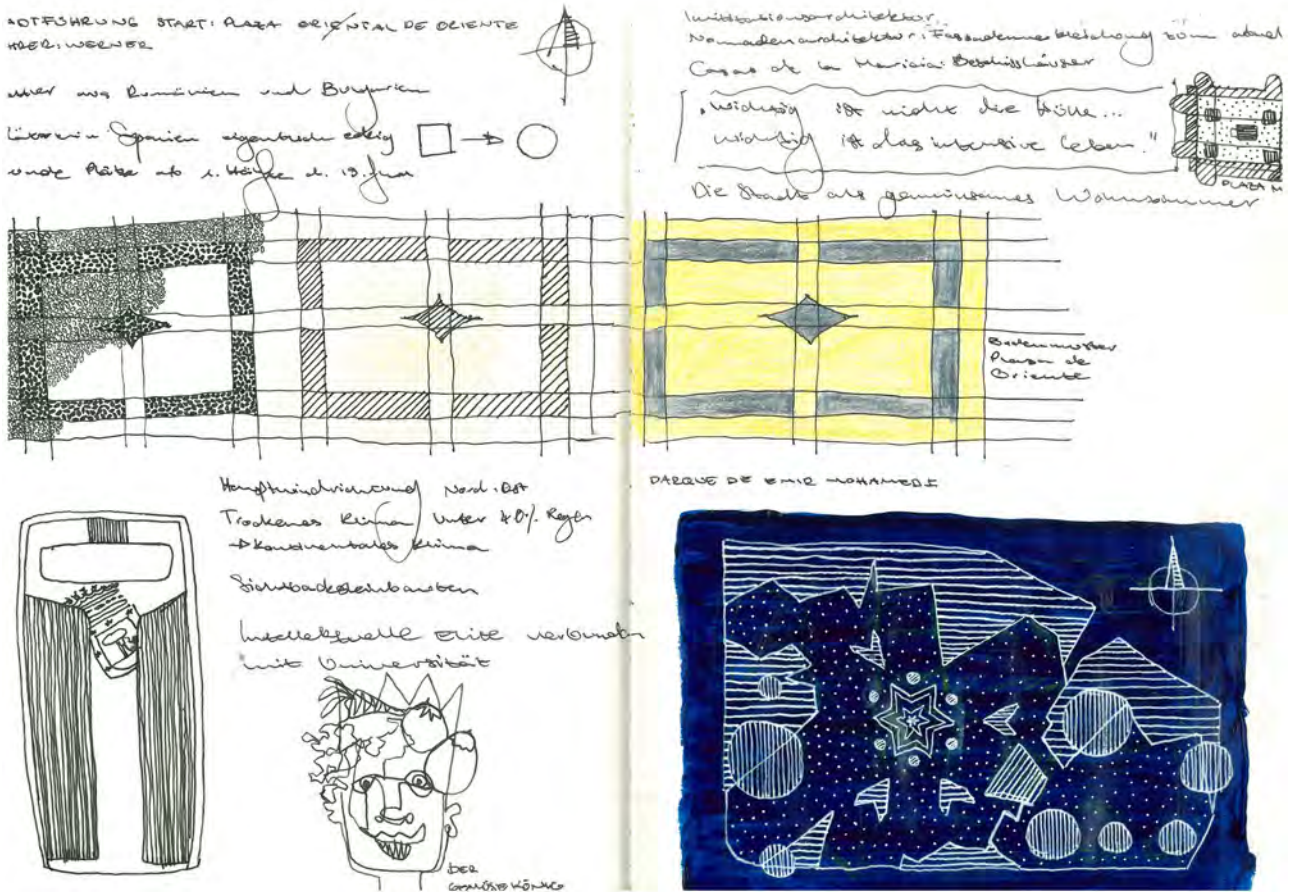 ADTFÜHRUNG START: PLAZA ORIENTAL DE ORIENTE
HRER: WERNER
aus Rumänien und Bulgarien
Spanien eckig
runde Plätze ab 1. Hälfte d. 19. Jhd
Imitationsarchitektur
Nomadenarchitektur: Fassadenverkleidung zum
Casas de la Maricia: Beschisshäuser
"Wichtig ist nicht die Hülle...
wichtig ist das intensive Leben."
PLAZA M
Die Stadt als gemeinsames Wohnzimmer
Bodenmuster
Plaza de
Oriente
Hauptwindrichtung Nord-Ost
Trockenes Klima unter 40% Regen
→ Kontinentales Klima
Sichtbacksteinbauten
Intellektuelle Elite verbunden
mit Universität
DER
GEMÜSEKÖNIG
PARQUE DE EMIR MOHAMED I